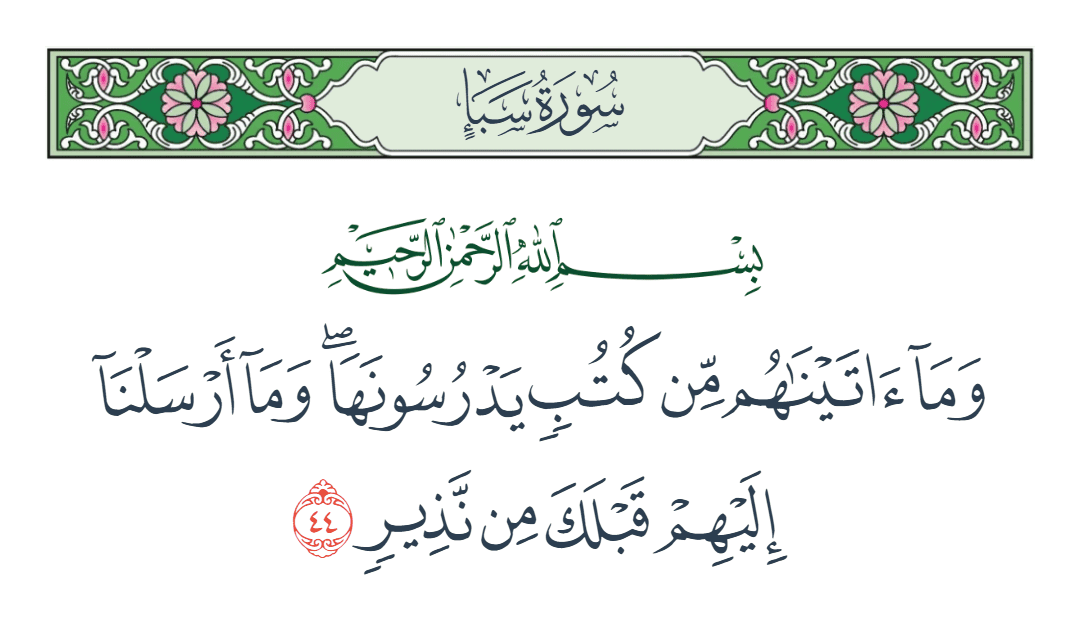 سُورَةُ سَبَإٍ
بِسْمِ ٱللَّهِ ٱلرَّحْمَٰنِ ٱلرَّحِيمِ
وَمَآ ءَاتَيْنَٰهُم مِّن كُتُبٍ يَدْرُسُونَهَا ۖ وَمَآ أَرْسَلْنَآ
إِلَيْهِمْ قَبْلَكَ مِن نَّذِيرٍ ٤٤